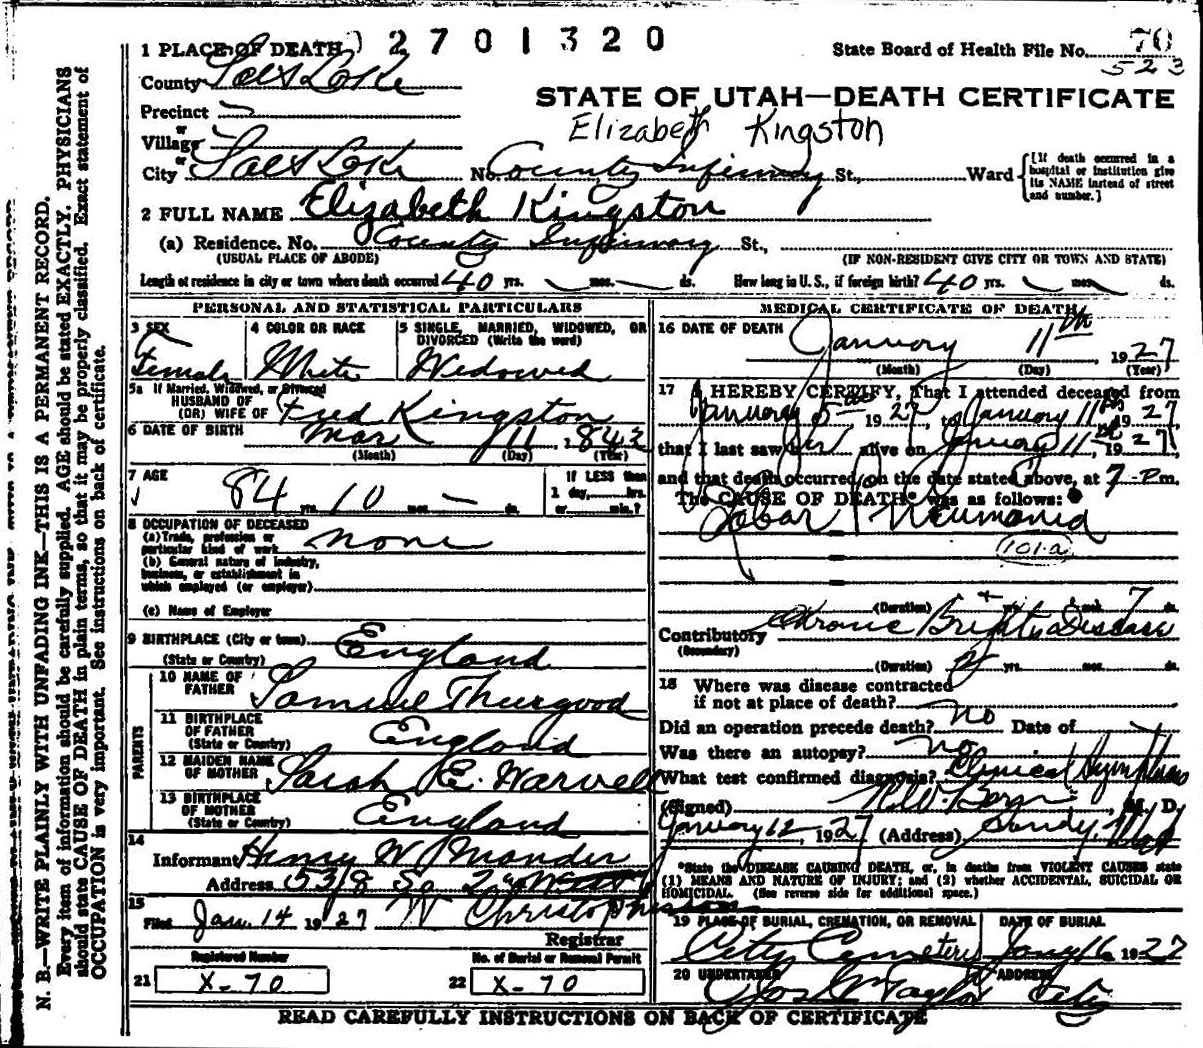 1 PLACE OF DEATH 2701320 State Board of Health File No. 70
523
County Salt Lake
STATE OF UTAH—DEATH CERTIFICATE
Precinct
Elizabeth Kingston
or
Village
or
City Salt Lake No. County Infirmary St., Ward [If death occurred in a hospital or institution give its NAME instead of street and number.]
2 FULL NAME Elizabeth Kingston
(a) Residence. No. County Infirmary St.,
(USUAL PLACE OF ABODE) (IF NON-RESIDENT GIVE CITY OR TOWN AND STATE)
Length of residence in city or town where death occurred 40 yrs. mos. ds. How long in U. S., if foreign birth? 40 yrs. mos. ds.
PERSONAL AND STATISTICAL PARTICULARS
3 SEX 4 COLOR OR RACE 5 SINGLE, MARRIED, WIDOWED, OR DIVORCED (Write the word)
Female White Widowed
5a If Married, Widowed, or Divorced
HUSBAND OF
(OR) WIFE OF Fred Kingston
6 DATE OF BIRTH Mar 11, 1842
(Month) (Day) (Year)
7 AGE If LESS than
84 yrs. 10 mos. — ds. 1 day, hrs.
or min.?
8 OCCUPATION OF DECEASED
(a) Trade, profession or
particular kind of work none
(b) General nature of industry,
business, or establishment in
which employed (or employer)
(c) Name of Employer
9 BIRTHPLACE (City or town) England
(State or Country)
PARENTS
10 NAME OF FATHER Samuel Thurgood
11 BIRTHPLACE OF FATHER England
(State or Country)
12 MAIDEN NAME OF MOTHER Sarah E. Warwell
13 BIRTHPLACE OF MOTHER England
(State or Country)
14
Informant Henry W Mander
Address 5318 So
15
Filed Jan. 14 1927 W Christopherson
Registrar
Registered Number No. of Burial or Removal Permit
21 X-70 22 X-70
MEDICAL CERTIFICATE OF DEATH
16 DATE OF DEATH January 11th, 1927
(Month) (Day) (Year)
17 I HEREBY CERTIFY, That I attended deceased from
January 5th 1927, to January 11th, 1927
that I last saw her alive on January 11th, 1927
and that death occurred, on the date stated above, at 7 P m.
The CAUSE OF DEATH* was as follows:
Lobar Pneumonia
101-a
(Duration) yrs. mos. 7 ds.
Contributory Chronic Brights Disease
(Secondary)
(Duration) 2 yrs. mos. ds.
18 Where was disease contracted
if not at place of death?
Did an operation precede death? no Date of
Was there an autopsy? no
What test confirmed diagnosis? Clinical Symptoms
(Signed) M. D.
January 12, 1927 (Address) Sandy, Utah
*State the DISEASE CAUSING DEATH, or, in deaths from VIOLENT CAUSES state
(1) MEANS AND NATURE OF INJURY; and (2) whether ACCIDENTAL, SUICIDAL OR
HOMICIDAL. (See reverse side for additional space.)
19 PLACE OF BURIAL, CREMATION, OR REMOVAL DATE OF BURIAL
City Cemetery Jany 16 1927
20 UNDERTAKER ADDRESS
Jos. Wm Taylor City
READ CAREFULLY INSTRUCTIONS ON BACK OF CERTIFICATE
N. B.—WRITE PLAINLY WITH UNFADING INK—THIS IS A PERMANENT RECORD.
Every item of information should be carefully supplied. AGE should be stated EXACTLY. PHYSICIANS
should state CAUSE OF DEATH in plain terms, so that it may be properly classified. Exact statement of
OCCUPATION is very important. See instructions on back of certificate.